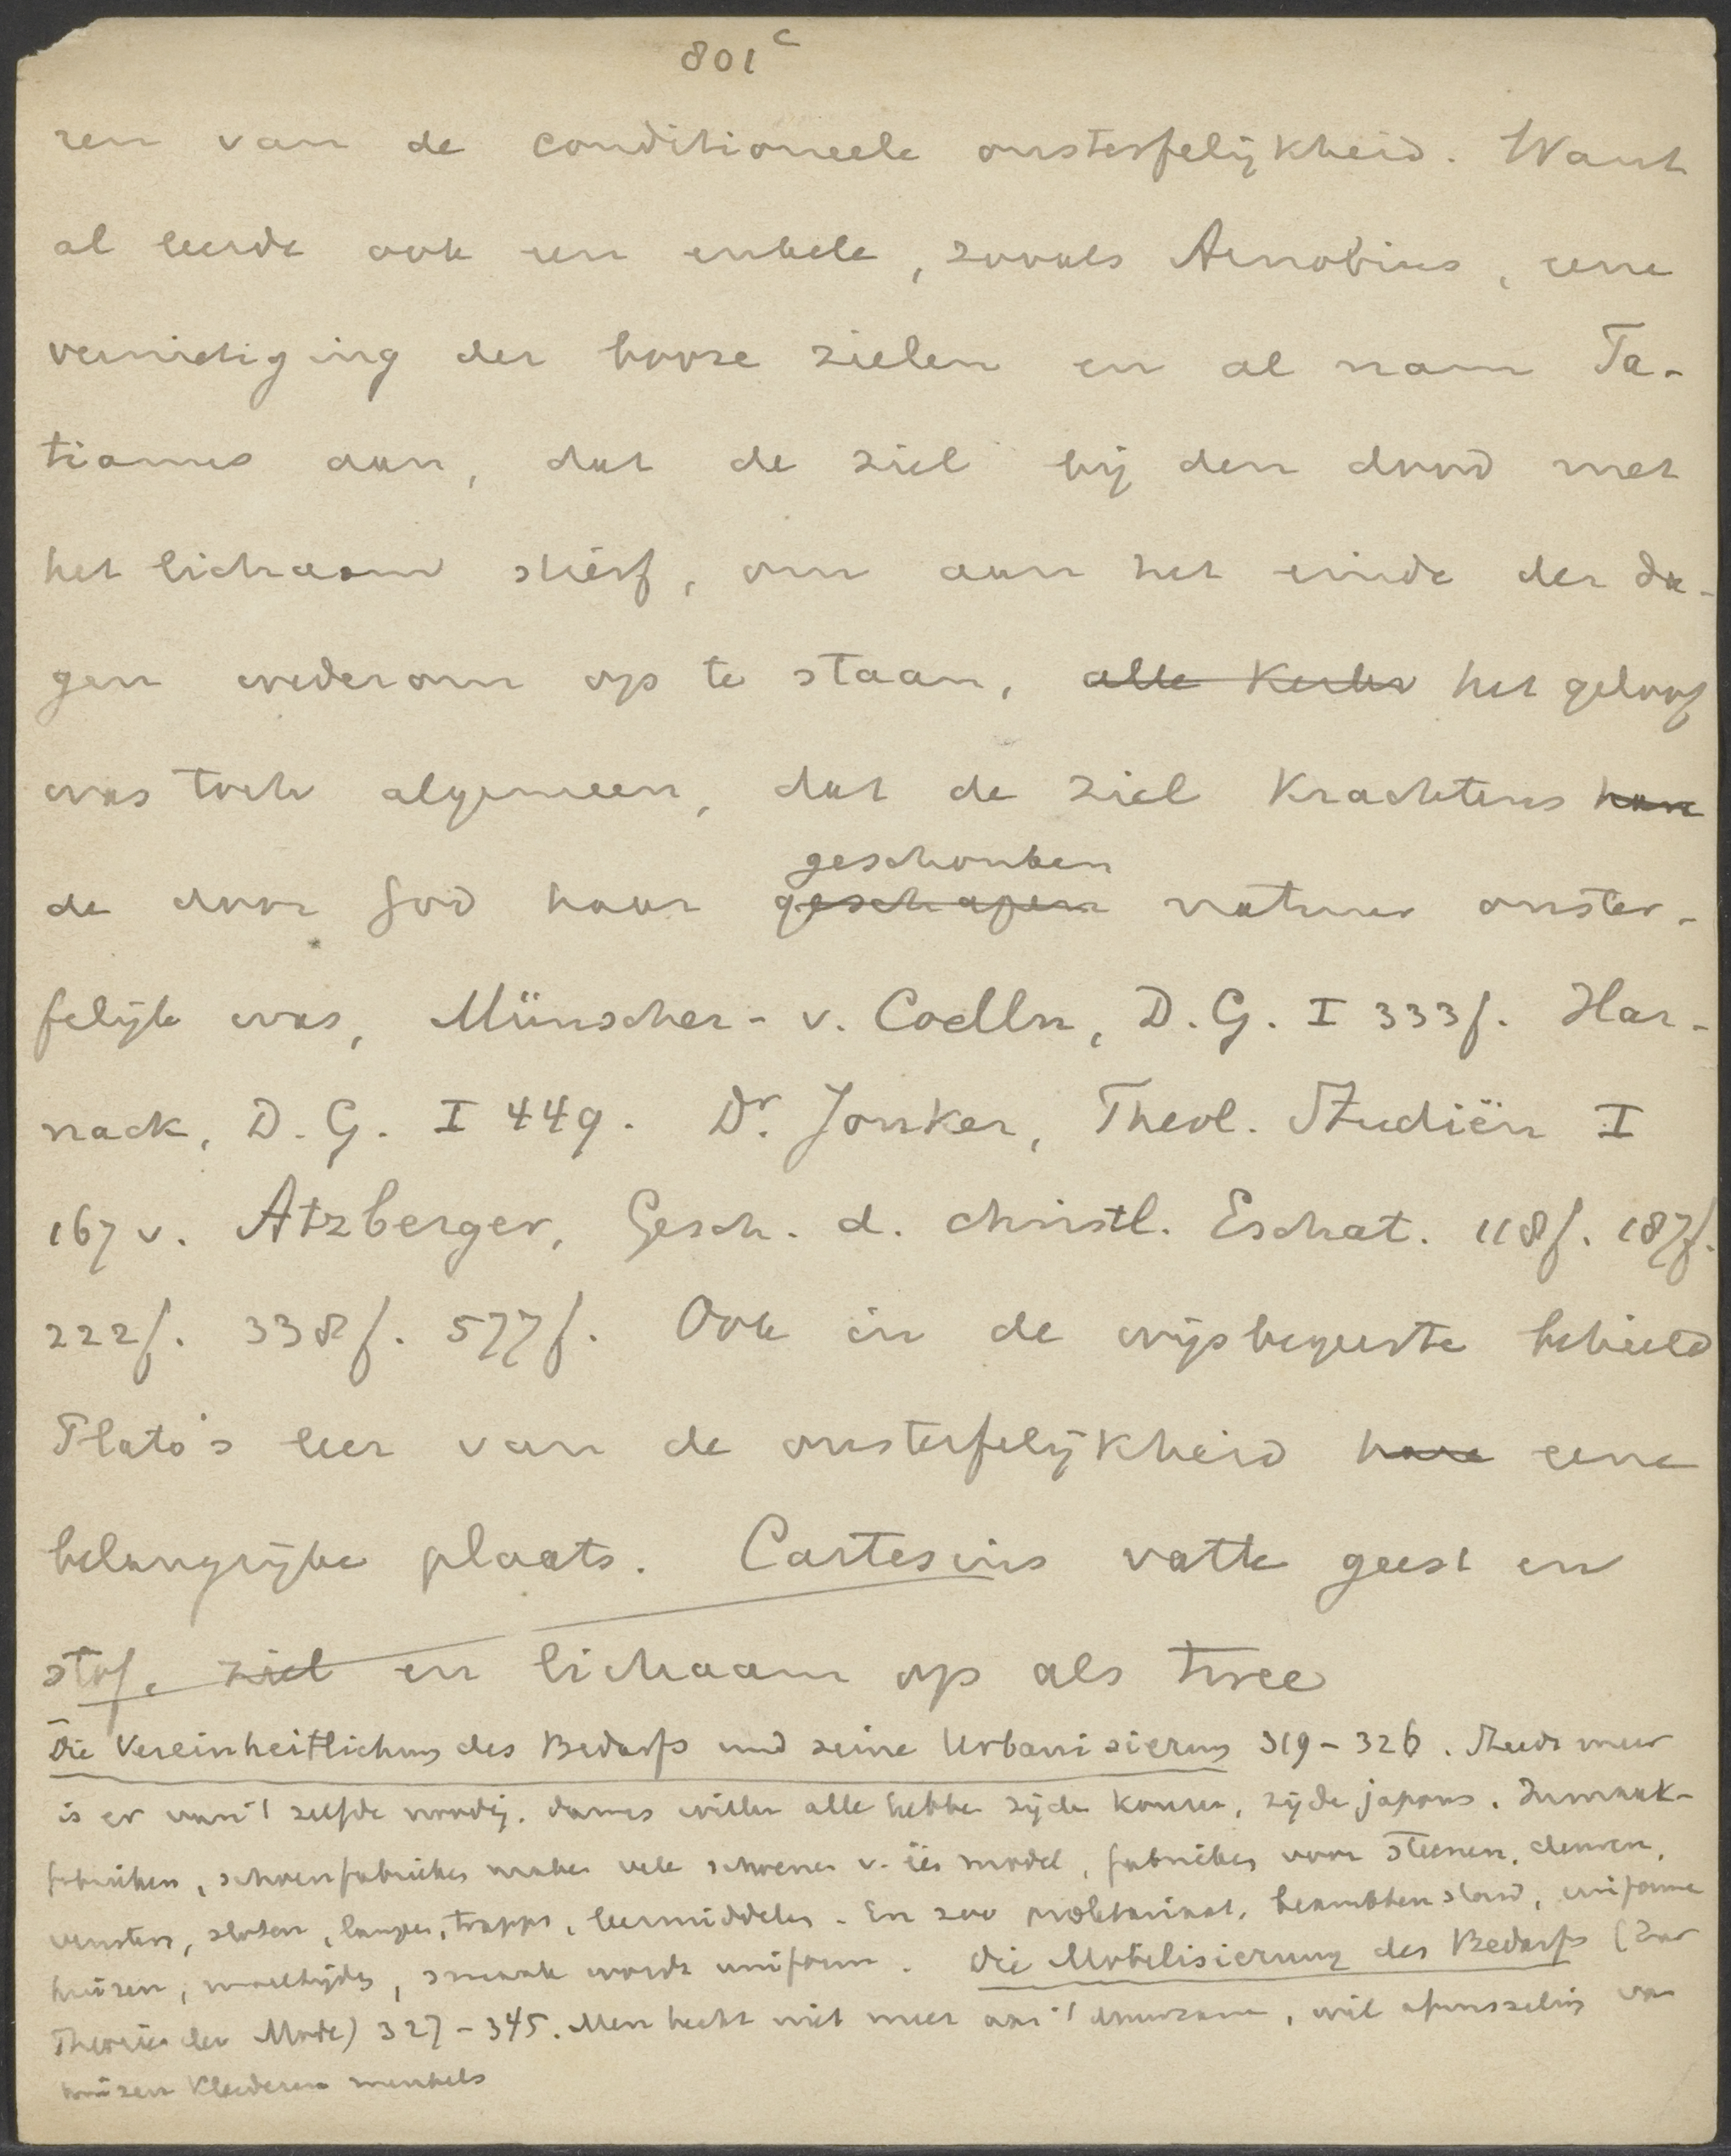 801 c
ren van de conditioneele onsterfelijkheid. Want
al leerde ook een enkele, zooals Arnobius, eene
vernietiging der booze zielen en al nam Ta-
tianus aan, dat de ziel bij den dood met
het lichaam stierf, om aan het einde der da-
gen wederom op te staan, alle het geloof
was toch algemeen, dat de ziel krachtens hare
geschonken
de door God haar geschapen natuur onster-
felijk was, Münscher-v. Coelln, D. G. I 333f. Har-
nack, D. G. I 449. Dr. Jonker, Theol. Studiën I
167 v. Atzberger, Gesch. d. christl. Eschat. 118f. 187f.
222f. 338f. 577f. Ook in de wijsbegeerte behield
Plato's leer van de onsterfelijkheid hare eene
belangrijke plaats. Cartesius vatte geest en
stof, ziel en lichaam op als twee
Die Vereinheitlichung des Bedarfs und seine Urbanisierung 319-326. Steeds meer
is er van 't zelfde noodig. dames willen alle hebben zijden kousen, zijde japons.
fabrieken, schoenfabrieken maken vele schoenen v. één model, fabrieken voor steenen, deuren,
vensters, sloten, lampen, trappen, leermiddelen. En zoo proletariaat, beambtenstand, uniforme
huizen, maaltijden, smaak wordt uniform. Die Mobilisierung des Bedarfs (Zur
Theorie der Mode) 327-345. Men hecht niet meer aan 't duurzame, wil afwisseling van
huizen kleederen meubels